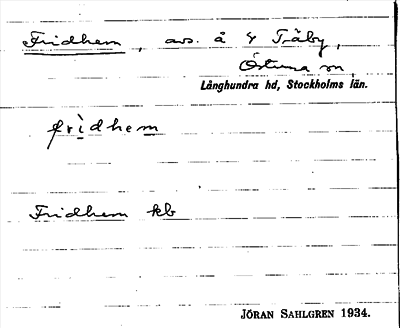 Fridhem, avs. å 4 Träby,
Östuna sn
Långhundra hd, Stockholms län.
fridhem
Fridhem kb
JÖRAN SAHLGREN 1934.